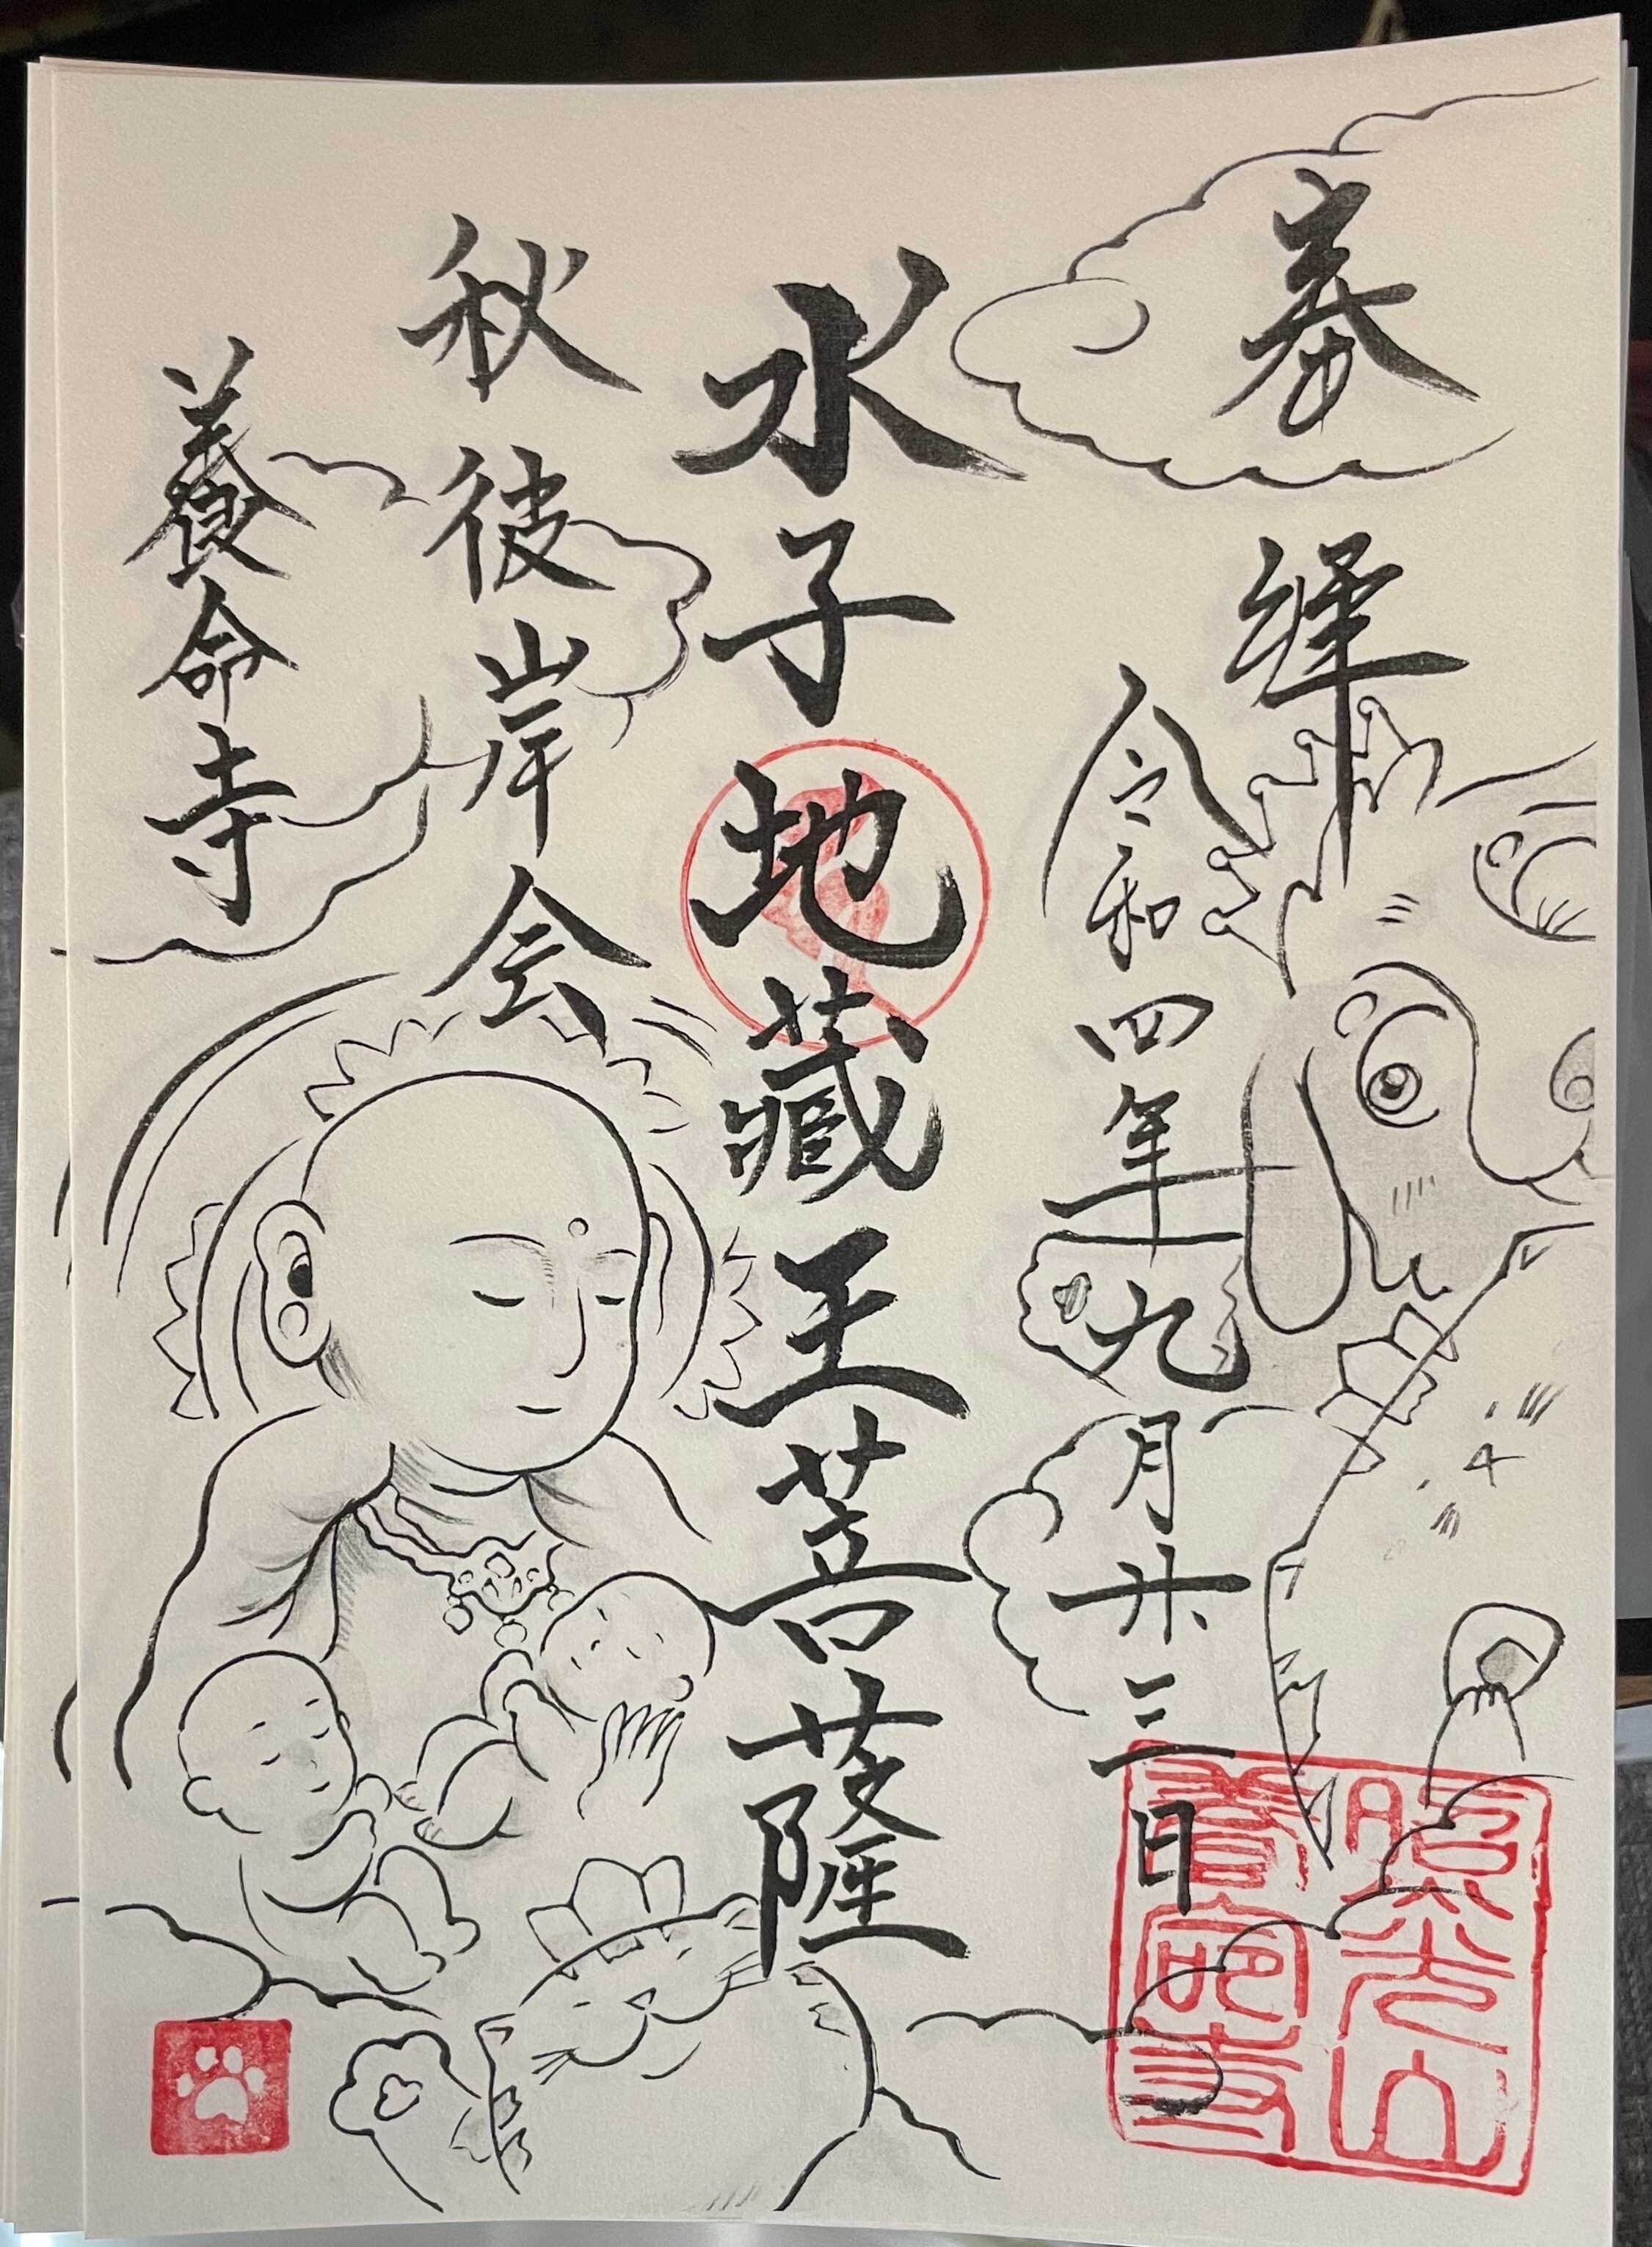 奉拝
令和四年九月廿三日
水子地藏王菩薩
秋彼岸会
養命寺
照光山
養命寺